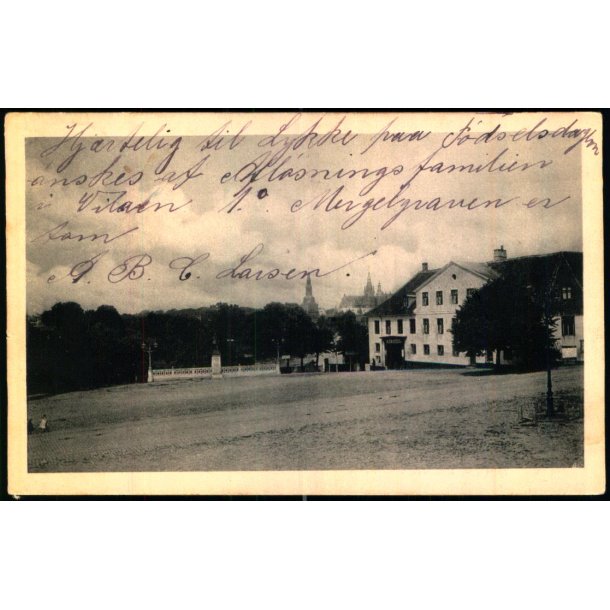 Hjærtelig til Lykke paa Fødselsdagen
ønskes af Afløsningsfamilien
i Vilaen 1.° Mergelgraven er
tom
A. B. C. Larsen.